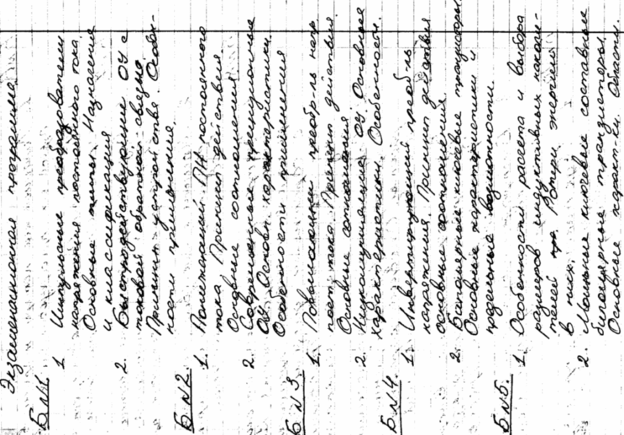 Экзаменационная программа
Б.№1.
1 Импульсные преобразователи
напряжения постоянного тока.
Основные типы. Назначение
и классификация
2. Быстродействующие ОУ с
токовой обратной связью
Принцип устройства. Особен-
ности применения.
Б.№2.
1. Понижающий ПН постоянного
тока. Принцип действия.
Основные соотношения
2. Современные прецизионные
ОУ. Основн. характеристики.
Особенности применения
Б.№3.
1. Повышающий преобр-ль напр.
пост. тока. Принцип действия.
Основные соотношения
2. ОУ. Основные
характеристики. Особенности.
Б.№4.
1. Инвертирующий преобр-ль
напряжения. Принцип действия
основные соотношения
2. Биполярные ключевые транзисторы.
Основные характеристики и
предельные возможности.
Б.№5.
1. Особенности расчета и выбора
размеров индуктивных накопи-
телей Потери энергии
в них.
2. Мощные ключевые составные
биполярные транзисторы.
Основные параметры. Области